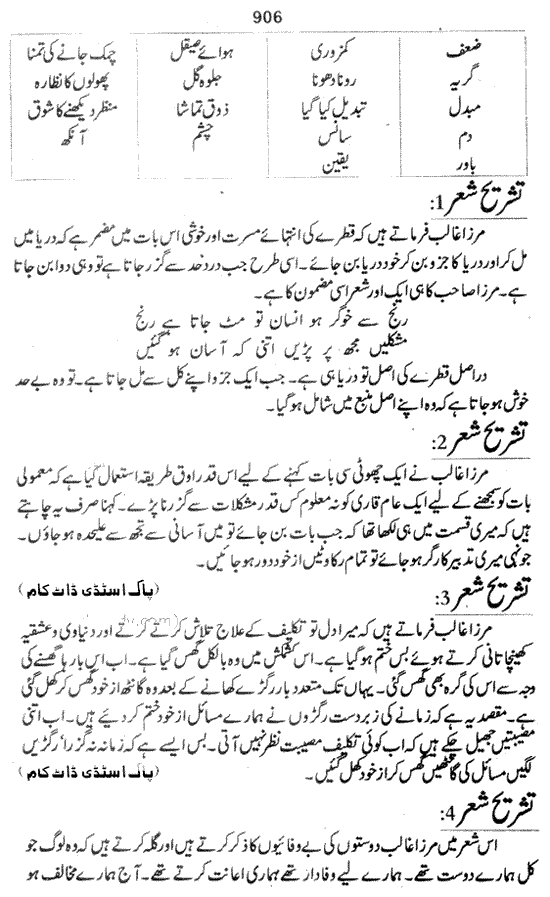 906
ضعف کمزوری ہوائے صیقل چمک جانے کی تمنا
گریہ رونا دھونا جلوہ گل پھولوں کا نظارہ
مبدل تبدیل کیا گیا ذوق تماشا منظر دیکھنے کا شوق
دم سانس چشم آنکھ
باور یقین
تشریح شعر 1:
مرزا غالب فرماتے ہیں کہ قطرے کی انتہائے مسرت اور خوشی اس بات میں مضمر ہے کہ دریا میں
مل کر اور دریا کا جزو بن کر خود دریا بن جائے۔ اسی طرح جب درد حد سے گزر جاتا ہے تو وہی دوا بن جاتا
ہے۔ مرزا صاحب کا ہی ایک اور شعر اسی مضمون کا ہے۔
رنج سے خوگر ہو انسان تو مٹ جاتا ہے رنج
مشکلیں مجھ پر پڑیں اتنی کہ آسان ہو گئیں
دراصل قطرے کی اصل تو دریا ہی ہے۔ جب ایک جزو اپنے کل سے مل جاتا ہے۔ تو وہ بے حد
خوش ہو جاتا ہے کہ وہ اپنے اصل منبع میں شامل ہو گیا۔
تشریح شعر 2:
مرزا غالب نے ایک چھوٹی سی بات کہنے کے لیے اس قدر اوق طریقہ استعمال کیا ہے کہ معمولی
بات کو سمجھنے کے لیے ایک عام قاری کو نہ معلوم کس قدر مشکلات سے گزرنا پڑے۔ کہنا صرف یہ چاہتے
ہیں کہ میری قسمت میں ہی لکھا تھا کہ جب بات بن جائے تو میں آسانی سے تجھ سے علیحدہ ہو جاؤں۔
جونہی میری تدبیر کارگر ہو جائے تو تمام رکاوٹیں از خود دور ہو جائیں۔
تشریح شعر 3: (پاک اسٹڈی ڈاٹ کام)
مرزا غالب فرماتے ہیں کہ میرا دل تو تکلیف کے علاج تلاش کرتے کرتے اور دنیاوی و عشقیہ
کھینچا تانی کرتے ہوئے بس ختم ہو گیا ہے۔ اس کشمکش میں وہ بالکل گھس گیا ہے۔ اب اس بار ہا گھسنے کی
وجہ سے اس کی گرہ بھی گھس گئی۔ یہاں تک متعدد بار رگڑے کھانے کے بعد وہ گانٹھ از خود گھس کر کھل گئی
ہے۔ مقصد یہ ہے کہ زمانے کی زبردست رگڑوں نے ہمارے مسائل از خود ختم کر دیے ہیں۔ اب اتنی
مصیبتیں جھیل چکے ہیں کہ اب کوئی تکلیف مصیبت نظر نہیں آتی۔ بس ایسے ہے کہ زمانہ نہ گزرا' رگڑیں
لگیں مسائل کی گانٹھیں گھس کر از خود کھل گئیں۔ (پاک اسٹڈی ڈاٹ کام)
تشریح شعر 4:
اس شعر میں مرزا غالب دوستوں کی بے وفائیوں کا ذکر کرتے ہیں اور گلہ کرتے ہیں کہ وہ لوگ جو
کل ہمارے دوست تھے۔ ہمارے لیے وفادار تھے ہماری اعانت کرتے تھے۔ آج ہمارے مخالف ہو